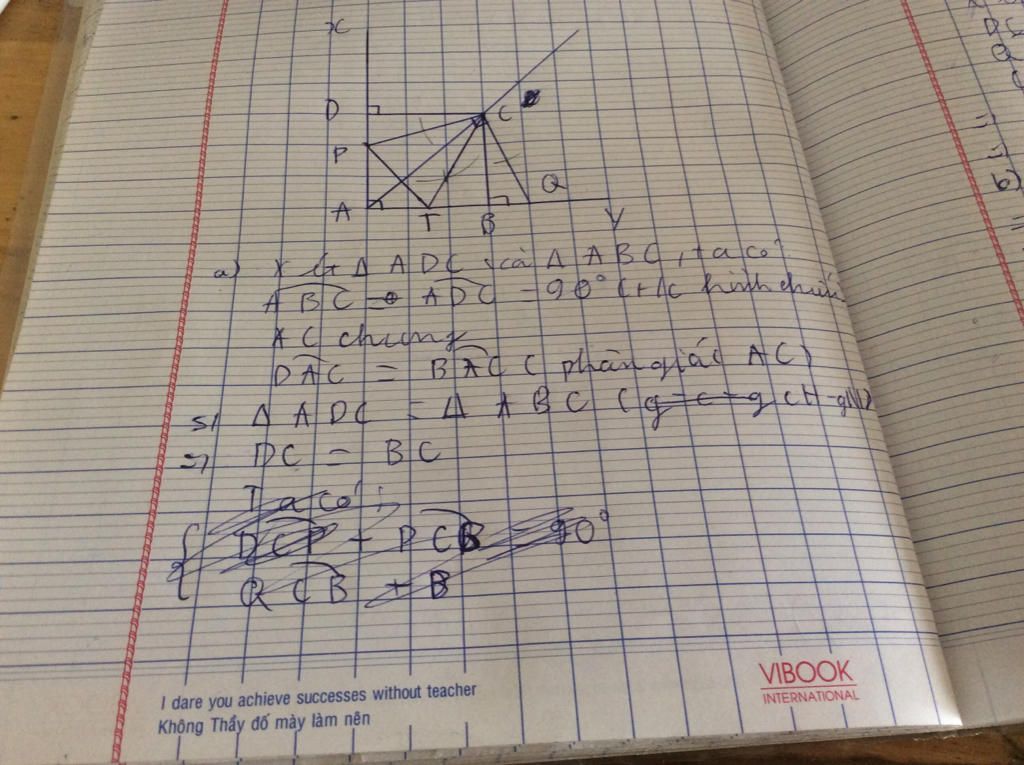 x
D
C
P
A
T
B
Q
y
a) Xét Δ ADC và Δ ABC, ta có:
ABC = ADC = 90° (t/c hình chiếu
AC chung
DAC = BAC ( phân giác AC)
=> Δ ADC = Δ ABC (g-c-g CH-GN)
=> DC = BC
Ta có:
DCP + PCB = 90°
QCB + B
I dare you achieve successes without teacher
Không Thầy đố mày làm nên
VIBOOK
INTERNATIONAL
DC
Q
b)